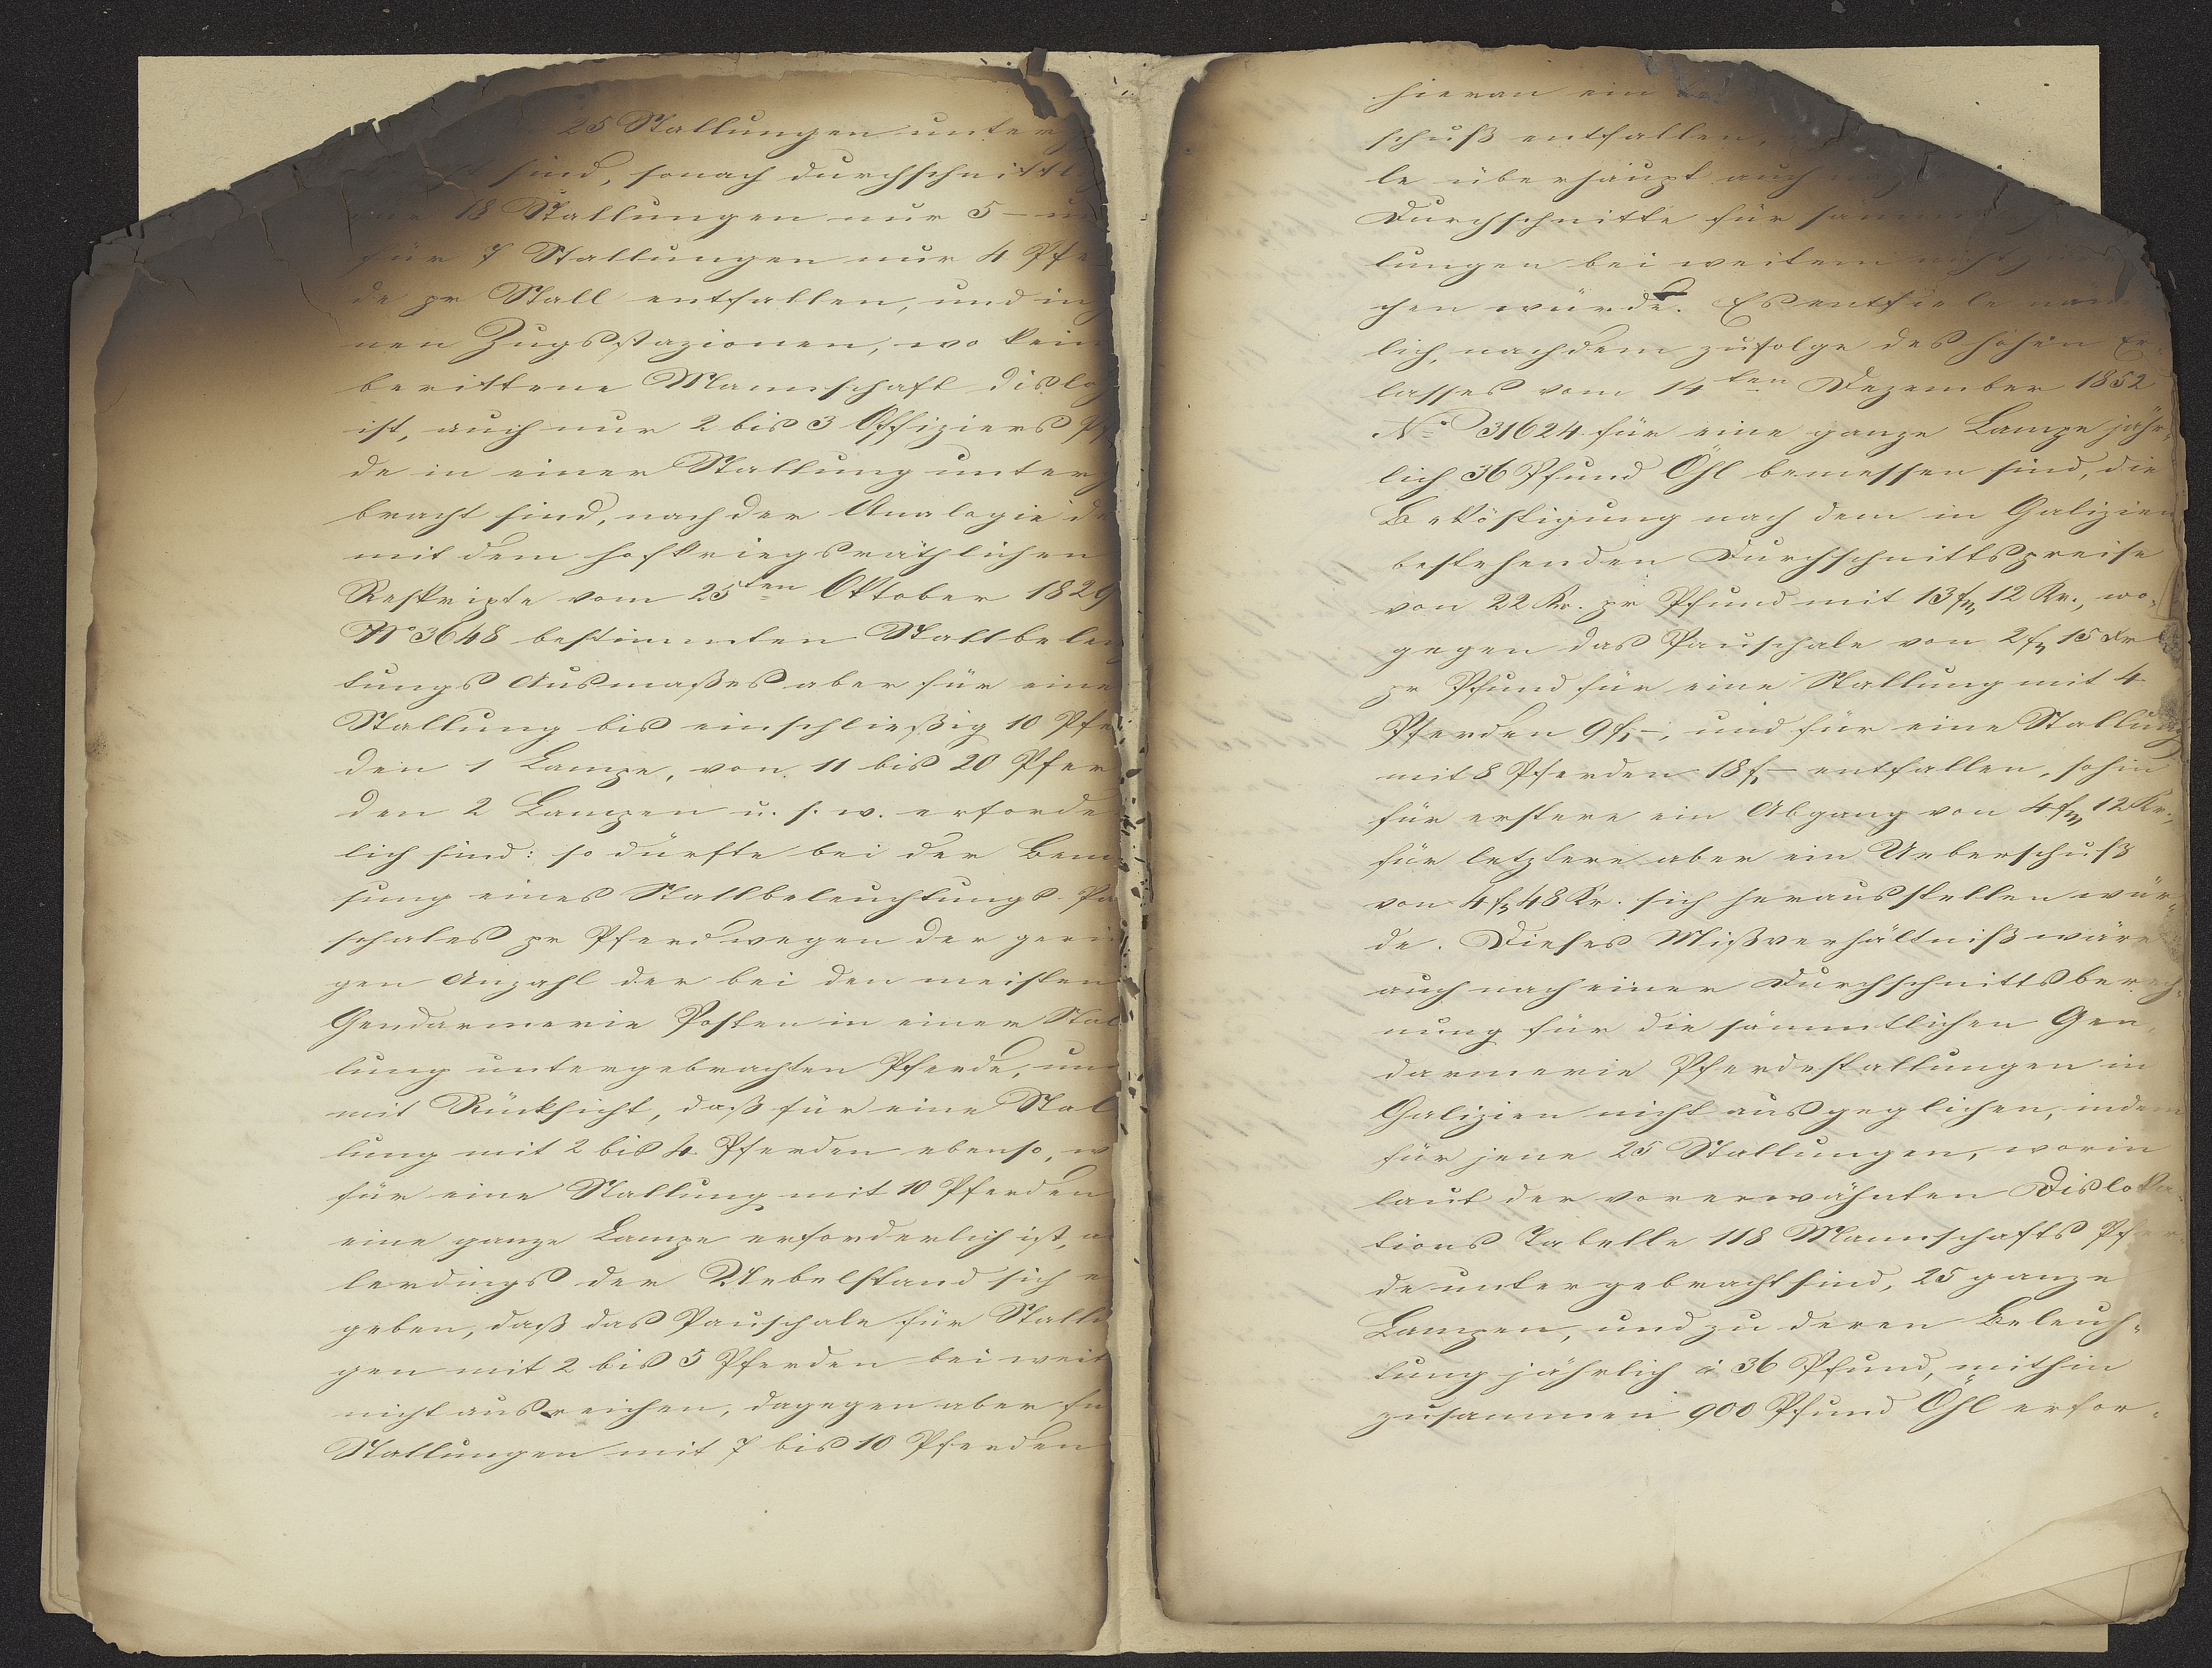 25 Stallungen unter
sind, sonach durchschnittl
18 Stallungen nur 5 –
für 7 Stallungen nur 4 Pfe
de pr Stall entfallen, und in
nen Zugsstazionen, wo kein
berittene Mannschaft disloz
ist, auch nur 2 bis 3 Offiziers Pf
de in einer Stallung unter
bracht sind, nach der Analogie de
mit dem hofkriegsräthlichen
Reskripte vom 25ten Oktober 1829
No 3648 bestimmten Stallbeleu
tungs Ausmaßes aber für eine
Stallung bis einschließig 10 Pfe
den 1 Lampe, von 11 bis 20 Pfer
den 2 Lampen u. s. w. erforde
lich sind: so dürfte bei der Bem
sung eines Stallbeleuchtungs-Pa
schales pr Pferd wegen der gerin
gen Anzahl der bei den meisten
Gendarmerie Posten in einer Stal
lung untergebrachten Pferde, un
mit Rücksicht, daß für eine Stal
lung mit 2 bis 4 Pferden ebenso, w
für eine Stallung mit 10 Pferden
eine ganze Lampe erforderlich ist, a
lerdings der Uebelstand sich e
geben, daß das Pauschale für Stallu
gen mit 2 bis 5 Pferden bei weit
nicht ausreichen, dagegen aber für
Stallungen mit 7 bis 10 Pferden
hievon ein
schuß entfallen,
le überhaupt auch
Durchschnitte für sämmt
lungen bei weitem nicht
chen würde. Es entfiele näm
lich, nachdem zufolge des hohen Er-
lasses vom 14ten Dezember 1852
No 31624 für eine ganze Lampe jähr-
lich 36 Pfund Öhl bemessen sind, die
Beköstigung nach dem in Galizien
bestehenden Durchschnittspreise
von 22 Kr. pr Pfund mit 13 f 12 Kr., wo-
gegen das Pauschale von 2 f 15 Kr
pr Pfund für eine Stallung mit 4
Pferden 9 f –, und für eine Stallung
mit 8 Pferden 18 f – entfallen, sohin
für erstere ein Abgang von 4 f 12 Kr.,
für letztere aber ein Ueberschuß
von 4 f 48 Kr. sich herausstellen wür-
de. Dieses Mißverhältniß wäre
auch nach einer Durchschnittsberech-
nung für die sämmtlichen Gen-
darmerie Pferdestallungen in
Galizien nicht ausgeglichen, indem
für jene 25 Stallungen, worin
laut der vorerwähnten Disloka-
tions Tabelle 118 Mannschafts Pfer-
de untergebracht sind, 25 ganze
Lampen, und zu deren Beleuch-
tung jährlich à 36 Pfund, mithin
zusammen 900 Pfund Öhl erfor-